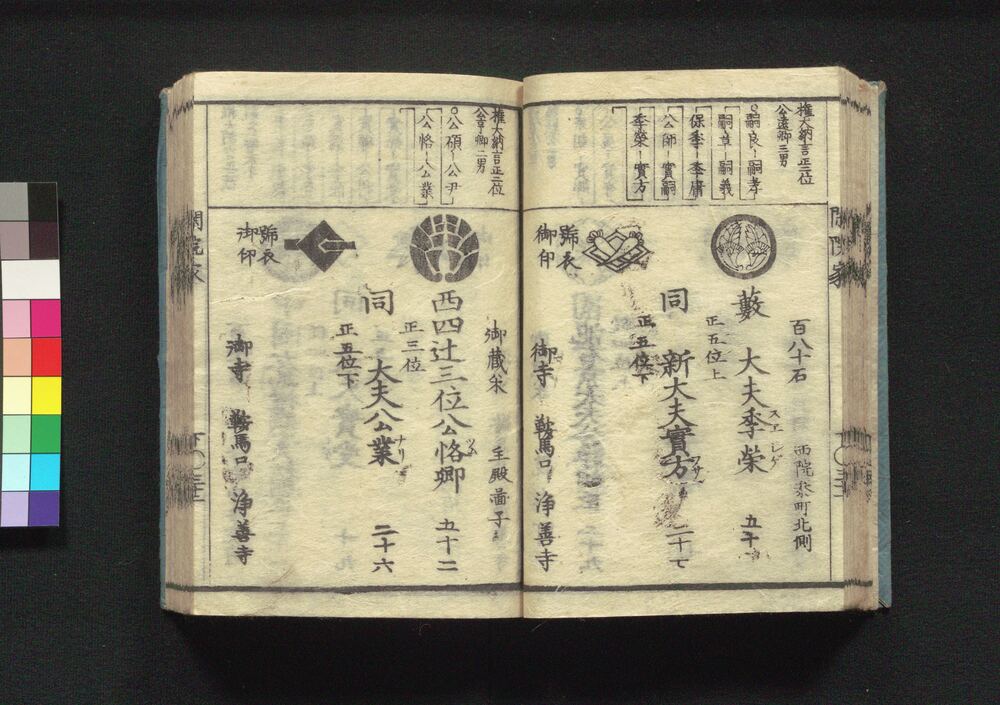 権大納言正三位
公遠卿二男
嗣良－嗣孝
嗣章－嗣義
保季－季庸
公師－實嗣
季榮－實方
百八十石
西院参町北側
藪
大夫季榮
スエ
正五位上
同
新大夫實方
正五位下
二十七
號衣
御印
御寺
鞍馬口
浄善寺
閑院家
権大納言正二位
公亨卿二男
公碩－公尹
公恪－公業
御蔵米
主殿啚子
西四辻三位公恪卿
正三位
五十二
同
大夫公業
ナリ
正五位下
二十六
號衣
御印
御寺
鞍馬口
浄善寺
閑院家